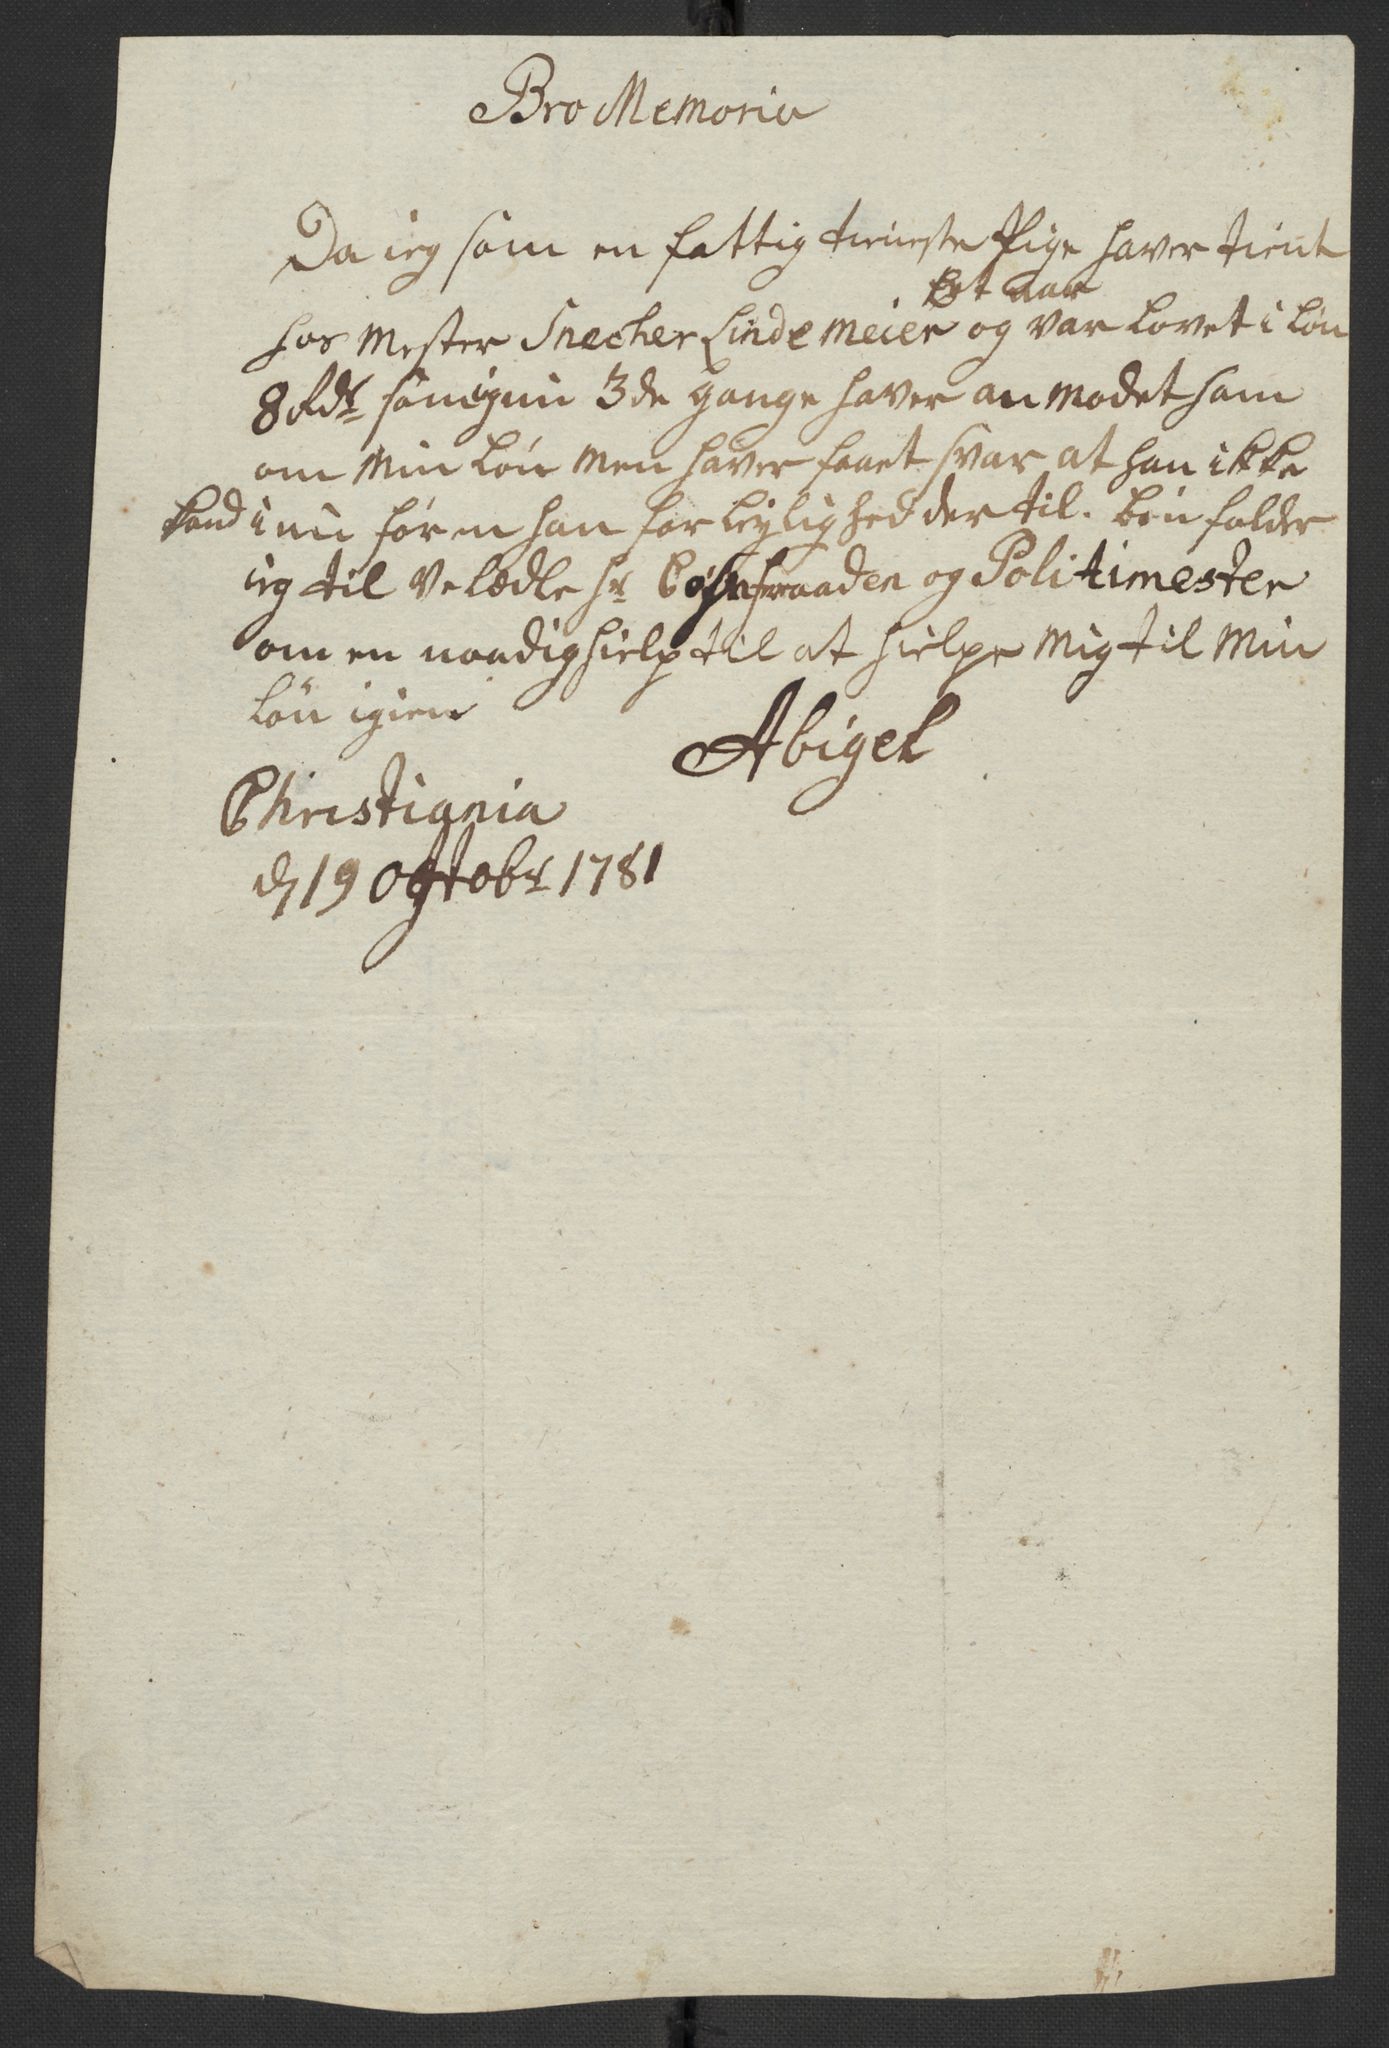 Bro Memoria
Da ieg som en fattig tieneste Pige haver tient
Et aar
hos Mester Snecher Lindemeier og var lovet i Løn
8 Rdr som 3de gange haver an modet ham
om Min Løn Men haver faaet svar at han ikke
kand i nu før en han faar leylighed der til. bønfalder
ieg til Velædle hr og Politimester
om en naadig hielp til at hielpe Mig til Min
Løn igien
Abigel
Christiania
d 19 Ogtobr 1781